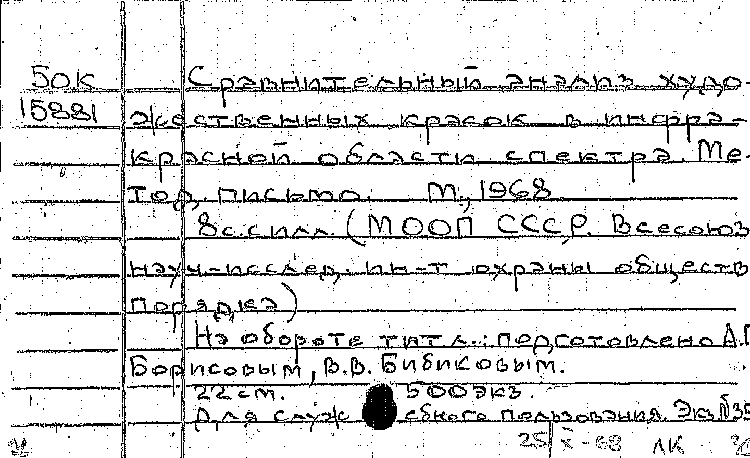 50К Сравнительный анализ худо-
15881 жественных красок в инфра-
красной области спектра. Ме-
тод. письмо. М., 1968
8 с. с илл. (МООП СССР. Всесоюз
науч-исслед. ин-т охраны обществ
порядка)
На обороте тит. л.: подготовлено А.Г
Борисовым, В.В. Бибиковым.
22 см. 500 экз.
Для служебного пользования. Экз №35
25/X-68 ЛК